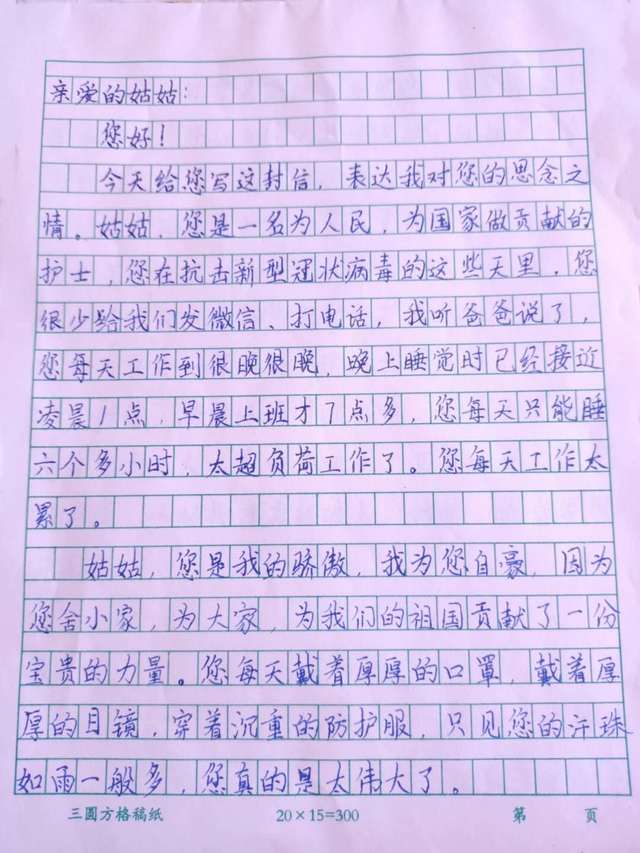 亲爱的姑姑：
您好！
今天给您写这封信，表达我对您的思念之
情。姑姑，您是一名为人民，为国家做贡献的
护士，您在抗击新型冠状病毒的这些天里，您
很少给我们发微信、打电话，我听爸爸说了，
您每天工作到很晚很晚，晚上睡觉时已经接近
凌晨1点，早晨上班才7点多，您每天只能睡
六个多小时，太超负荷工作了。您每天工作太
累了。
姑姑，您是我的骄傲，我为您自豪，因为
您舍小家，为大家，为我们的祖国贡献了一份
宝贵的力量。您每天戴着厚厚的口罩，戴着厚
厚的目镜，穿着沉重的防护服，只见您的汗珠
如雨一般多，您真的是太伟大了。
三圆方格稿纸 20×15=300 第 页